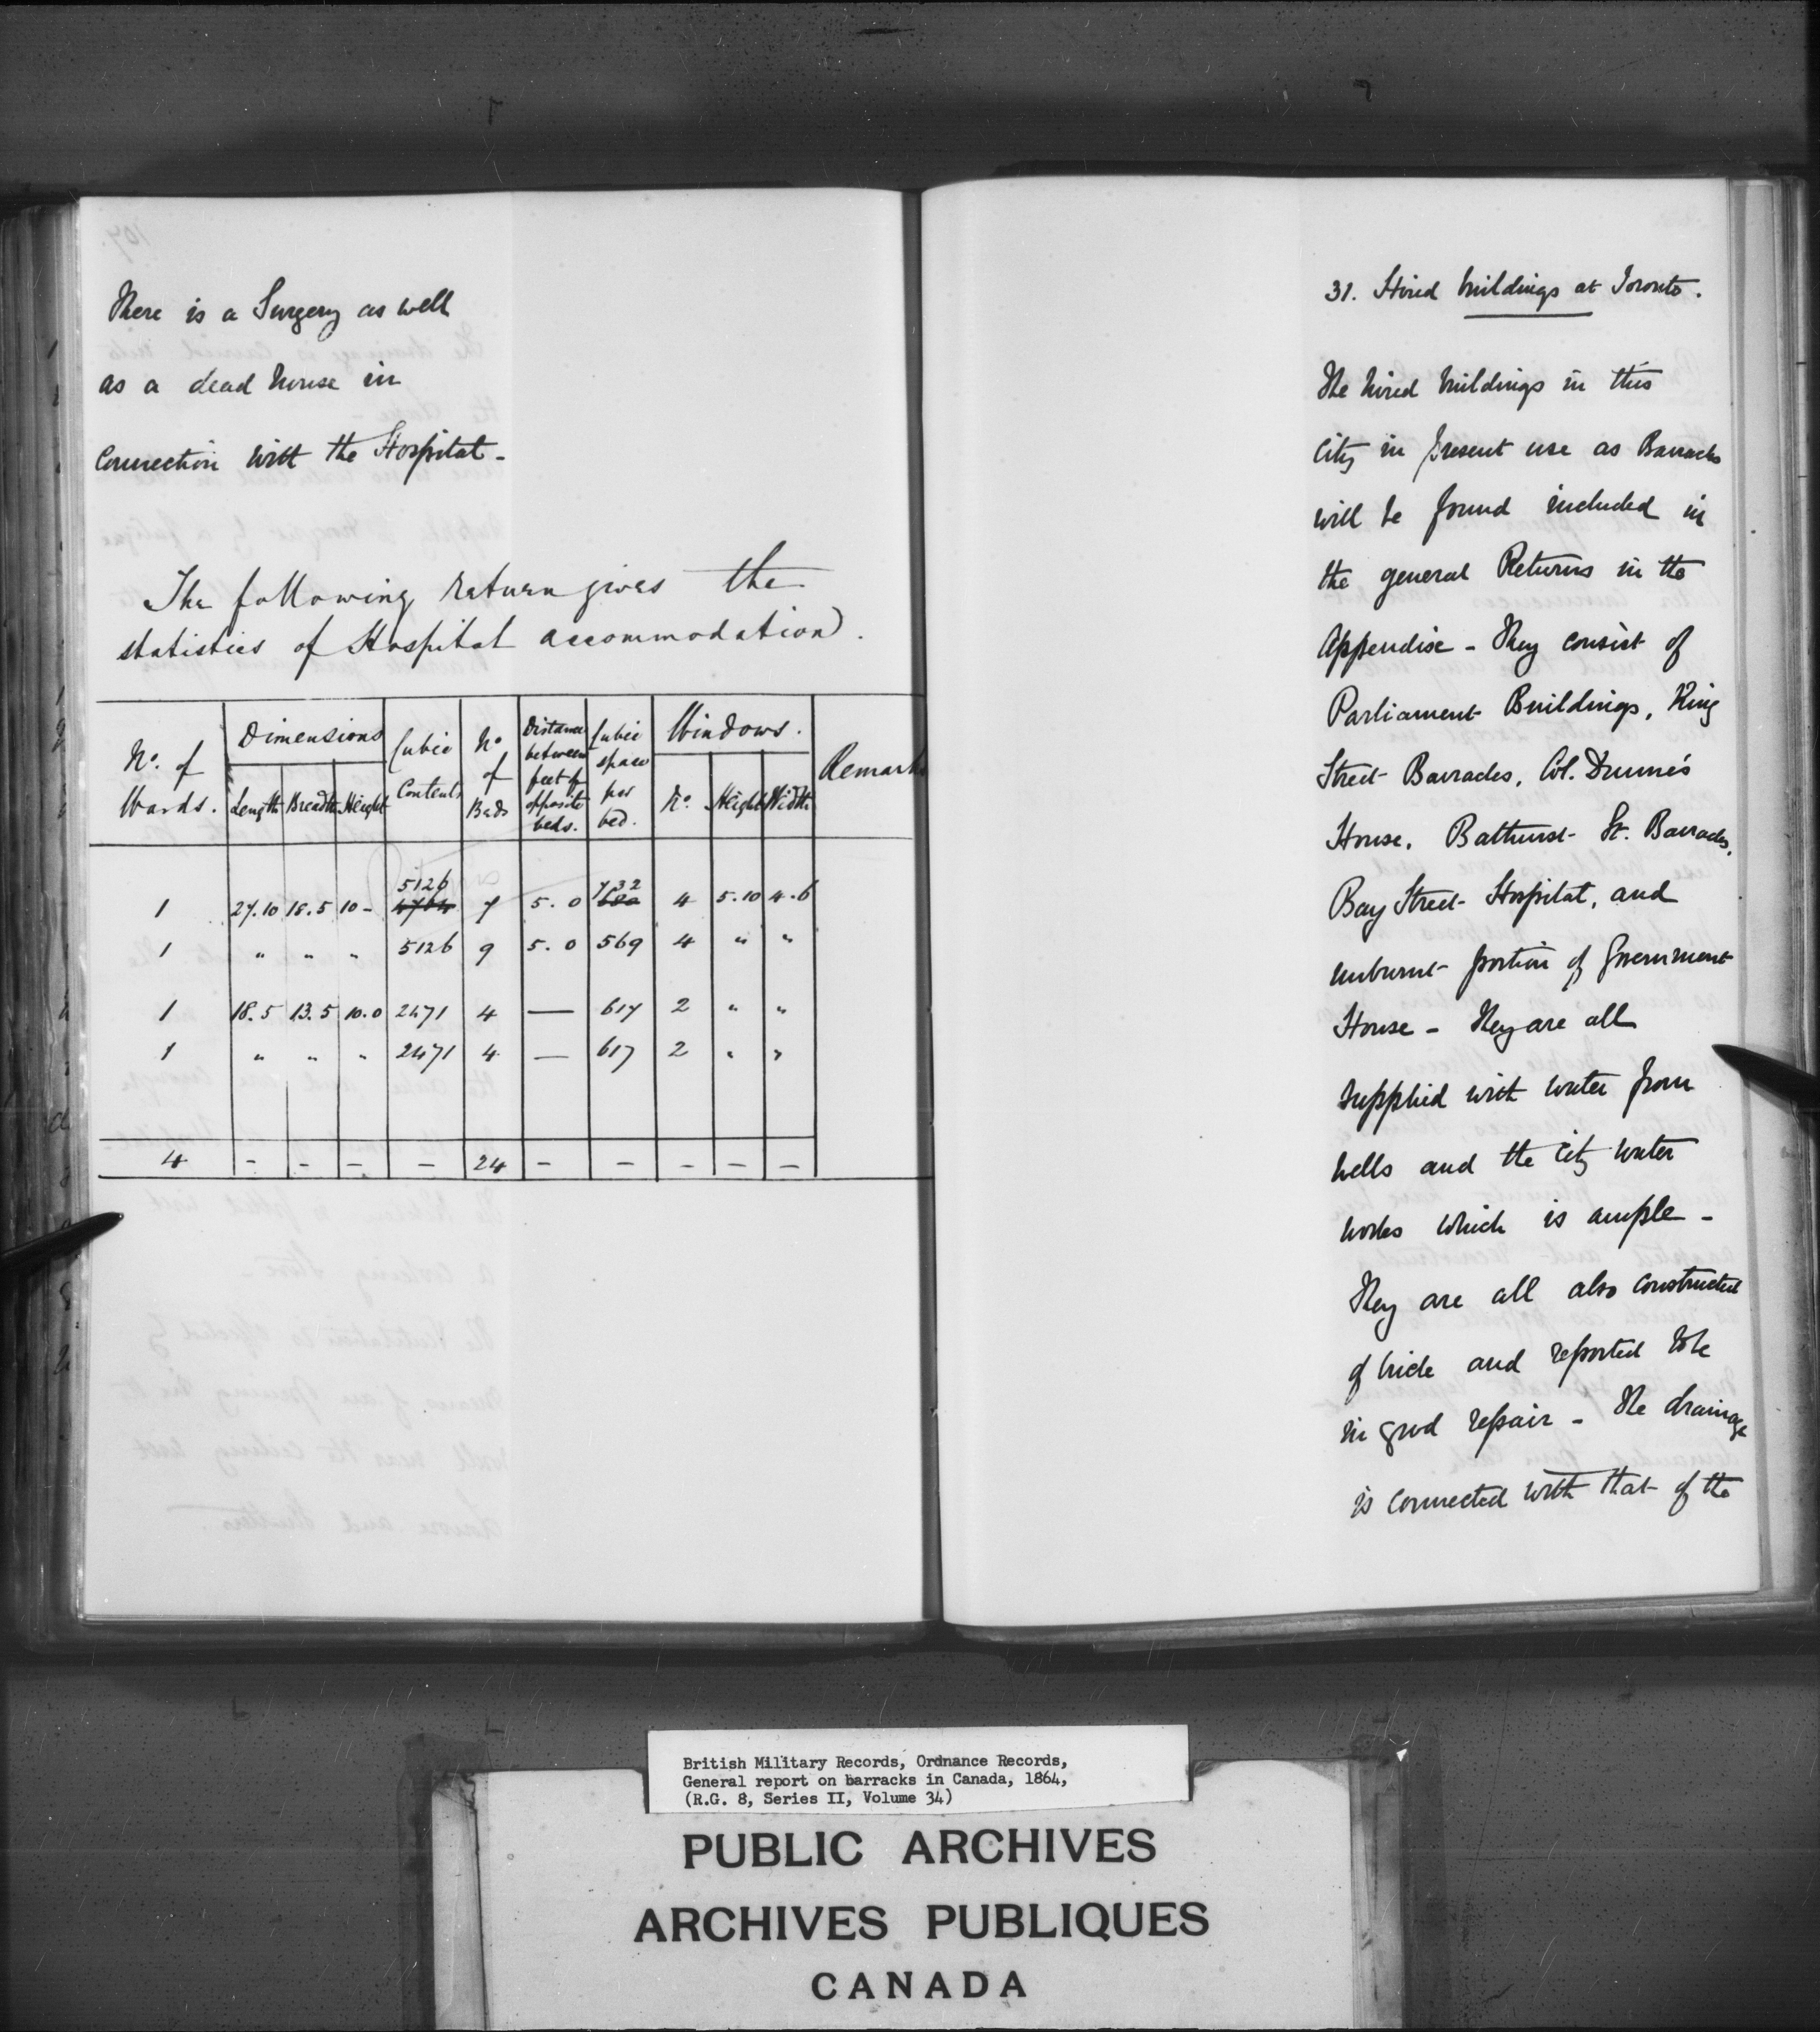 There is a Surgery as well
as a dead house in
connection with the Hospital -
The following return gives the
statistics of Hospital accommodation.
No. of Wards. | Dimensions | Cubic Contents | No of Beds | Distance between feet of opposite beds. | Cubic space per bed. | Windows. | Remarks
Length | Breadth | Height | No. | Height | Width
1 | 27.10 | 18.5 | 10 - | 5126 | 7 | 5.0 | 732 | 4 | 5.10 | 4.6
1 | " | " | " | 5126 | 9 | 5.0 | 569 | 4 | " | "
1 | 18.5 | 13.5 | 10.0 | 2471 | 4 | — | 617 | 2 | " | "
1 | " | " | " | 2471 | 4 | — | 617 | 2 | " | "
4 | - | - | - | - | 24 | - | - | - | - | -
31. Hired buildings at Toronto.
The hired buildings in this
City in present use as Barracks
will be found included in
the general Returns in the
Appendix - They consist of
Parliament Buildings, King
Street Barracks, Col. Dunn's
House, Bathurst St. Barracks,
Bay Street Hospital, and
unburnt portion of Government
House - They are all
supplied with water from
wells and the City water
works which is ample -
They are all also constructed
of brick and reported to be
in good repair - The drainage
is connected with that of the
British Military Records, Ordnance Records,
General report on barracks in Canada, 1864,
(R.G. 8, Series II, Volume 34)
PUBLIC ARCHIVES
ARCHIVES PUBLIQUES
CANADA